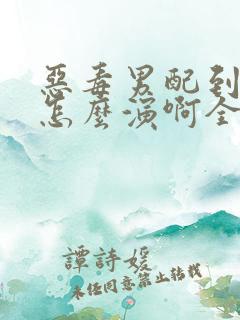 惡毒男配到
怎麼演啊全
譚詩媛
未經同意禁止轉載